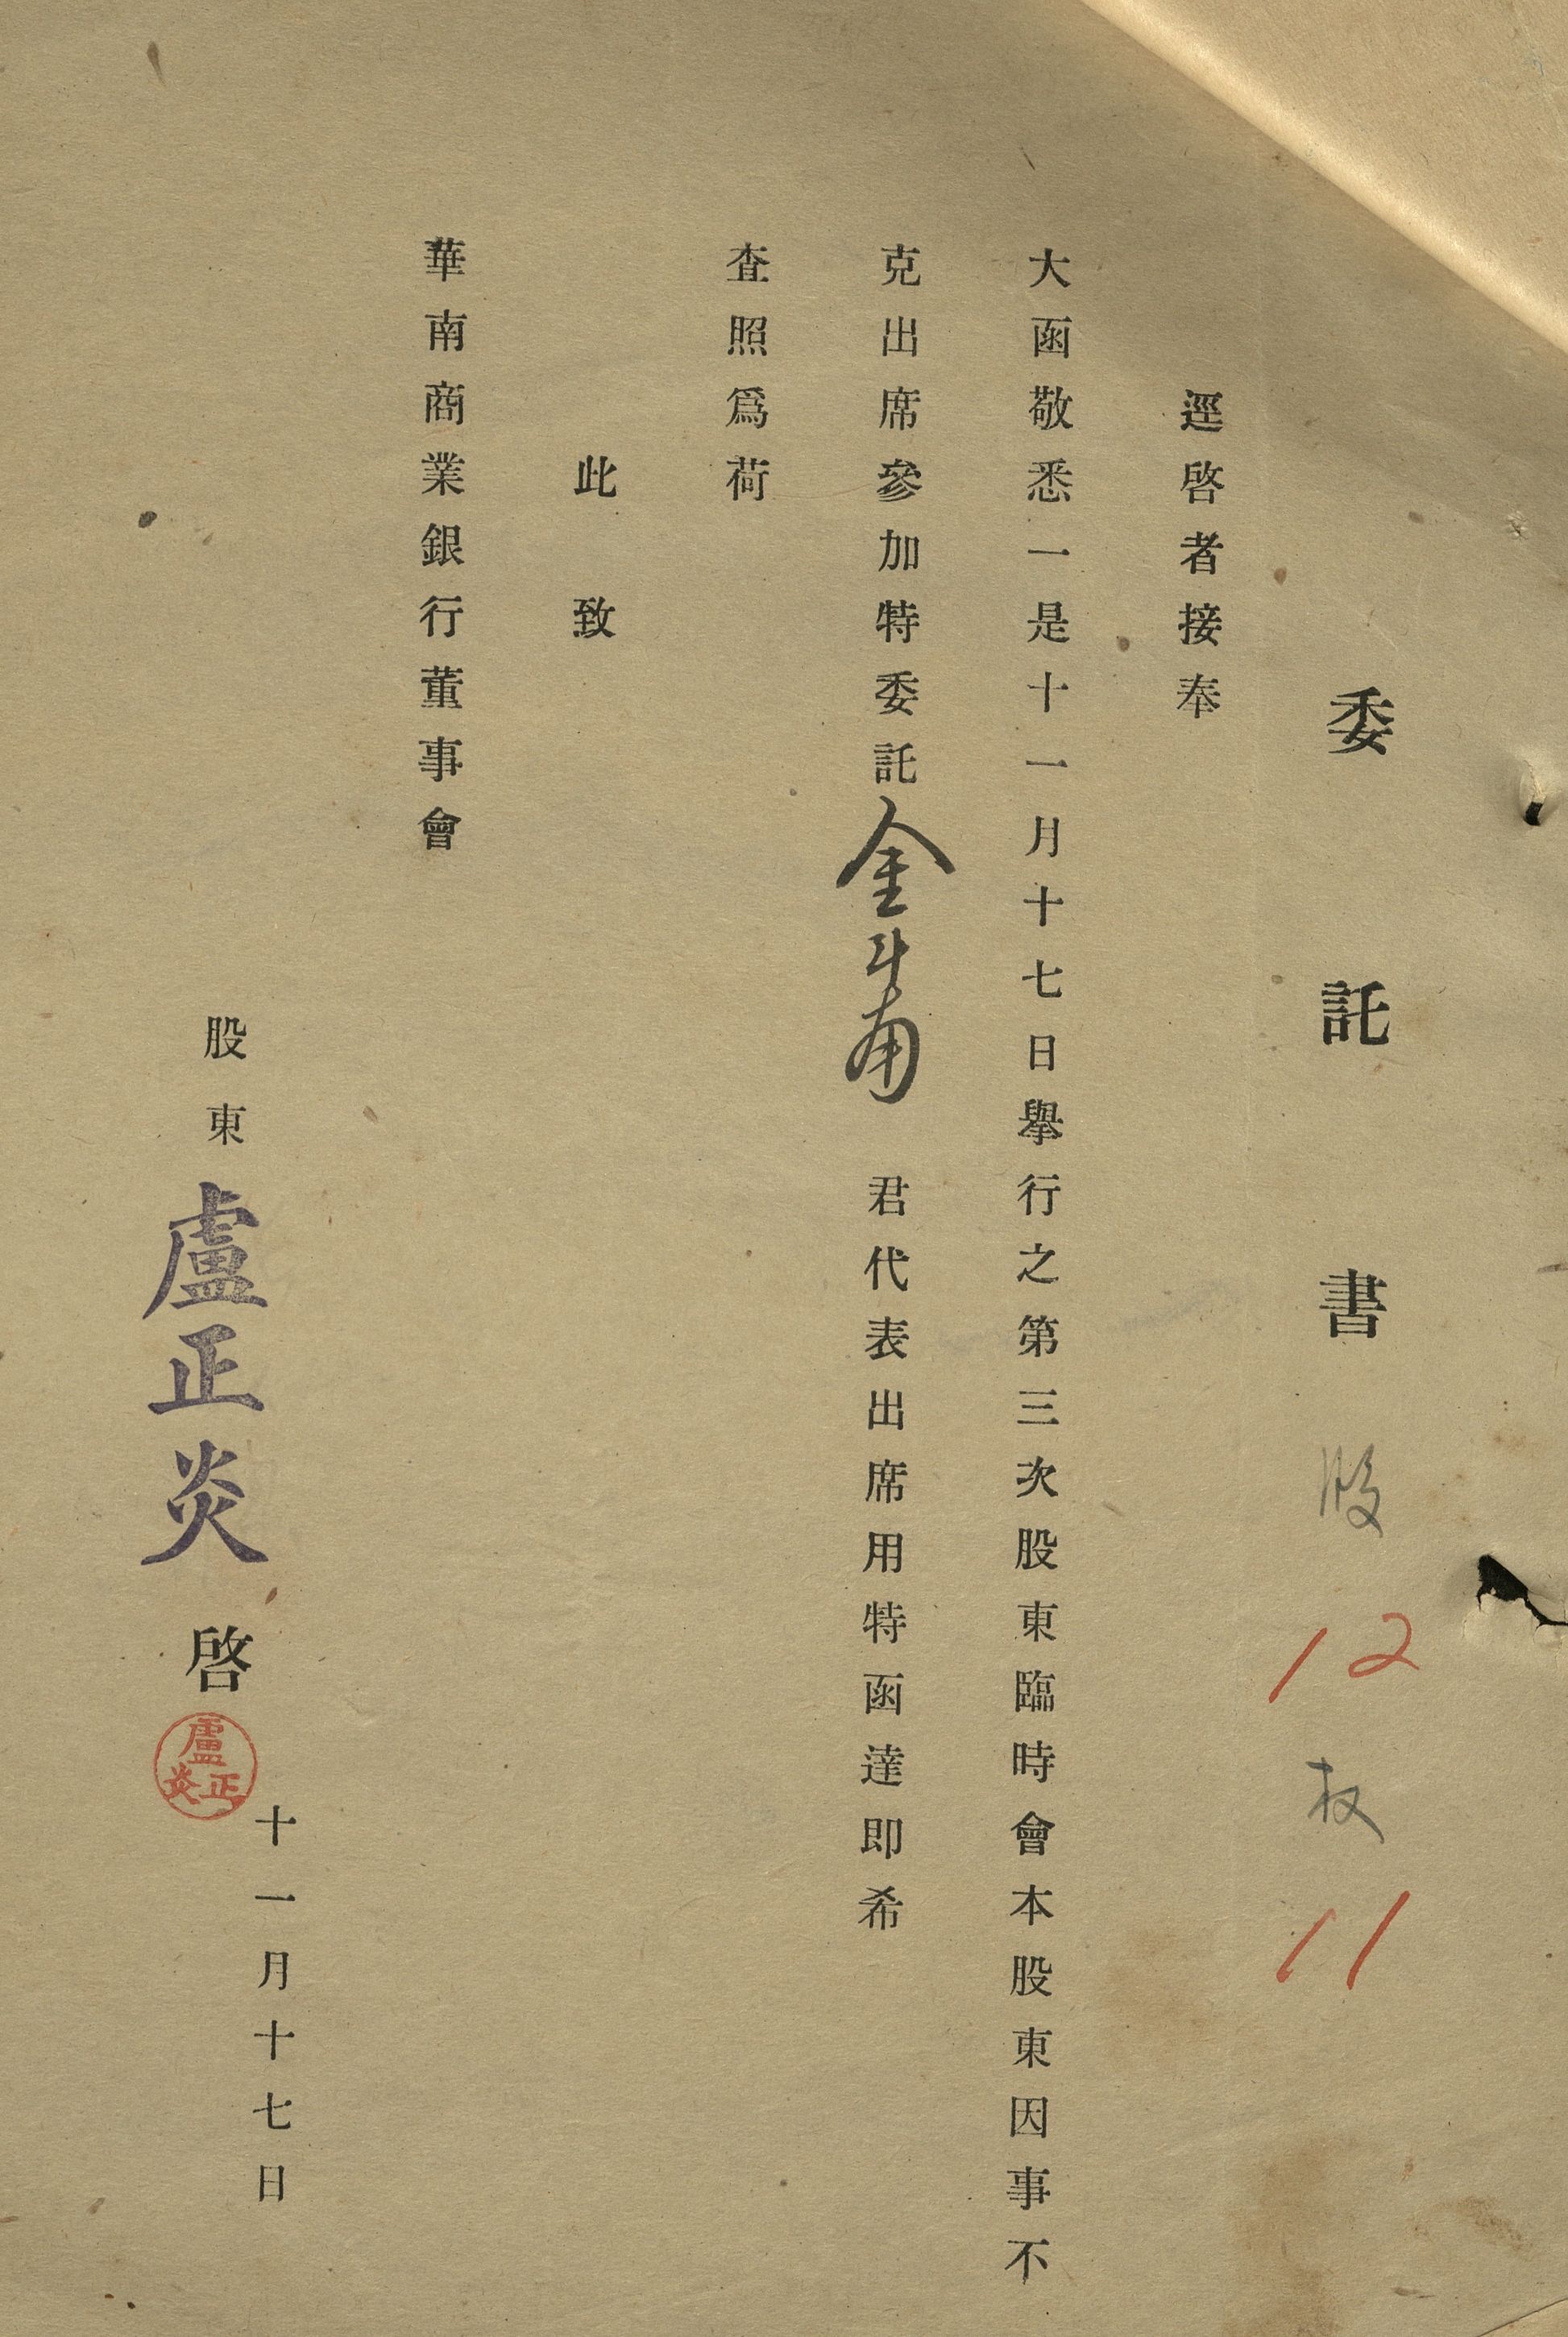 委託書 股 12 权 11
逕啓者接奉
大函敬悉一是十一月十七日舉行之第三次股東臨時會本股東因事不
克出席參加特委託金斗甫 君代表出席用特函達即希
查照爲荷
此致
華南商業銀行董事會
十一月十七日
股東 盧正炎 啓
盧正炎